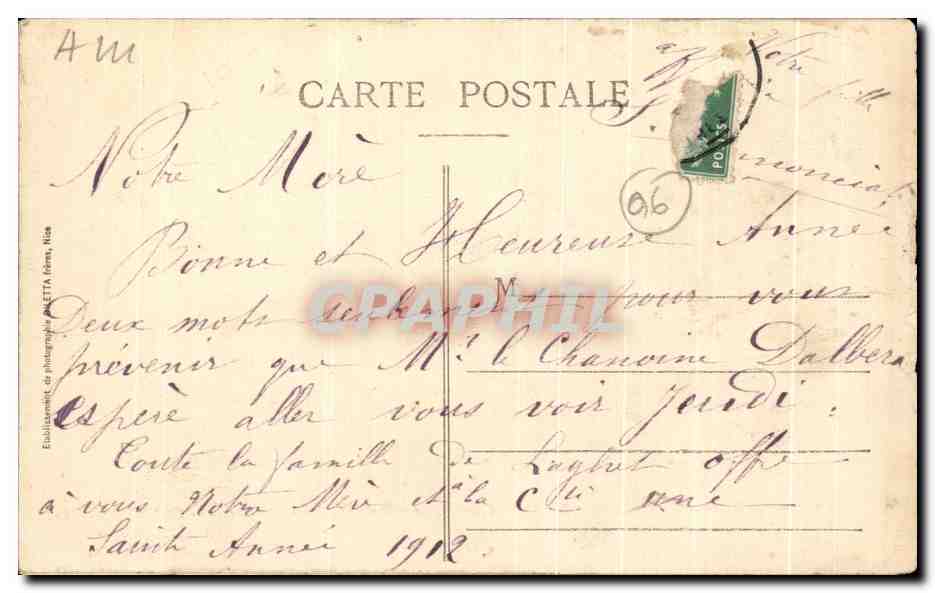 A m
CARTE POSTALE
Votre
fille
POSTES
96
Notre Mère
Bonne et Heureuse Année
M
Deux mots seulement pour vous
prévenir que Mr. le Chanoine Dalbera
espère aller vous voir Jeudi.
Toute la famille de Laghet offre
à vous Notre Mère et à la Cté une
Sainte Année 1912.
Etablissement de photographie GILETTA frères, Nice
CPAPHIL